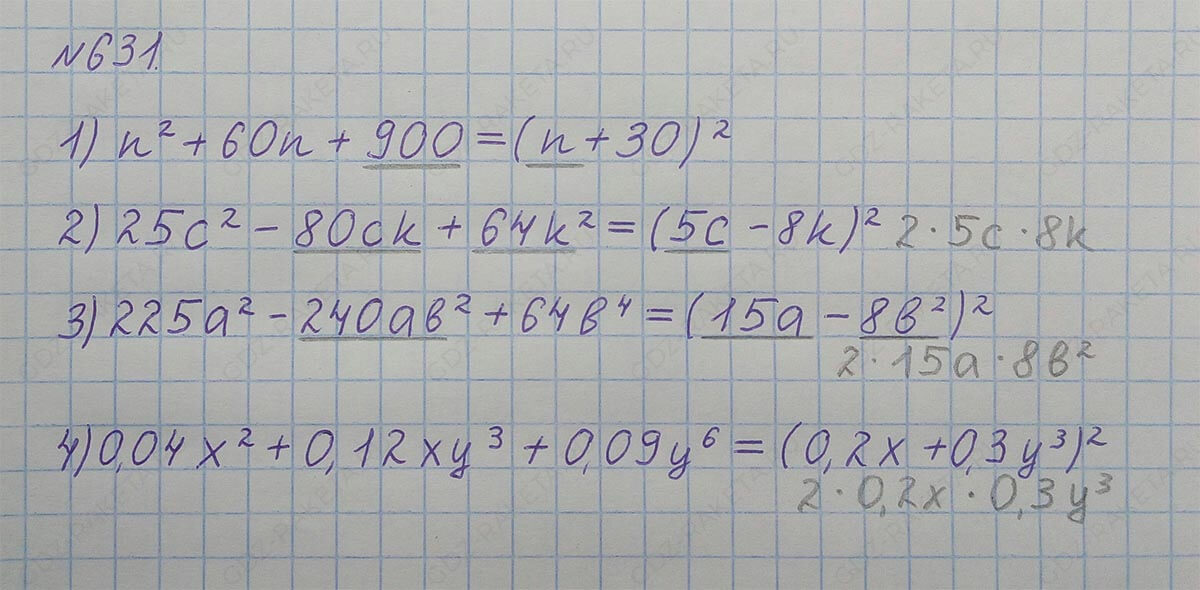 №631.
1) n² + 60n + 900 = (n + 30)²
2) 25c² − 80ck + 64k² = (5c − 8k)² 2·5c·8k
3) 225a² − 240aв² + 64в⁴ = (15a − 8в²)²
2·15a·8в²
4) 0,04x² + 0,12xy³ + 0,09y⁶ = (0,2x + 0,3y³)²
2·0,2x·0,3y³